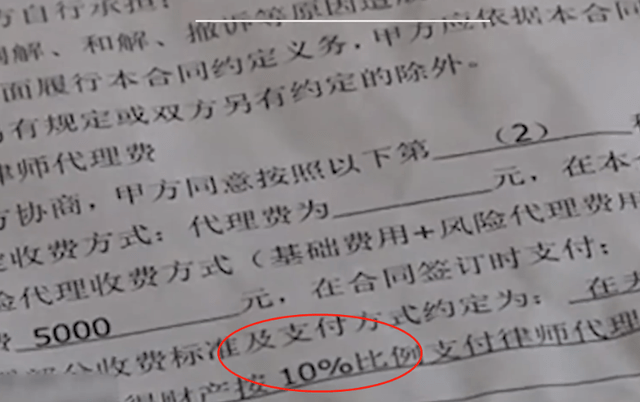 方自行承担;
调解、和解、撤诉等原因造成
面履行本合同约定义务,甲方应依据本合同
另有规定或双方另有约定的除外。
律师代理费
方协商,甲方同意按照以下第 (2)
定收费方式:代理费为 元,在本
险代理收费方式(基础费用+风险代理费用
费 5000 元,在合同签订时支付;
部分收费标准及支付方式约定为: 在
得财产按 10%比例支付律师代理